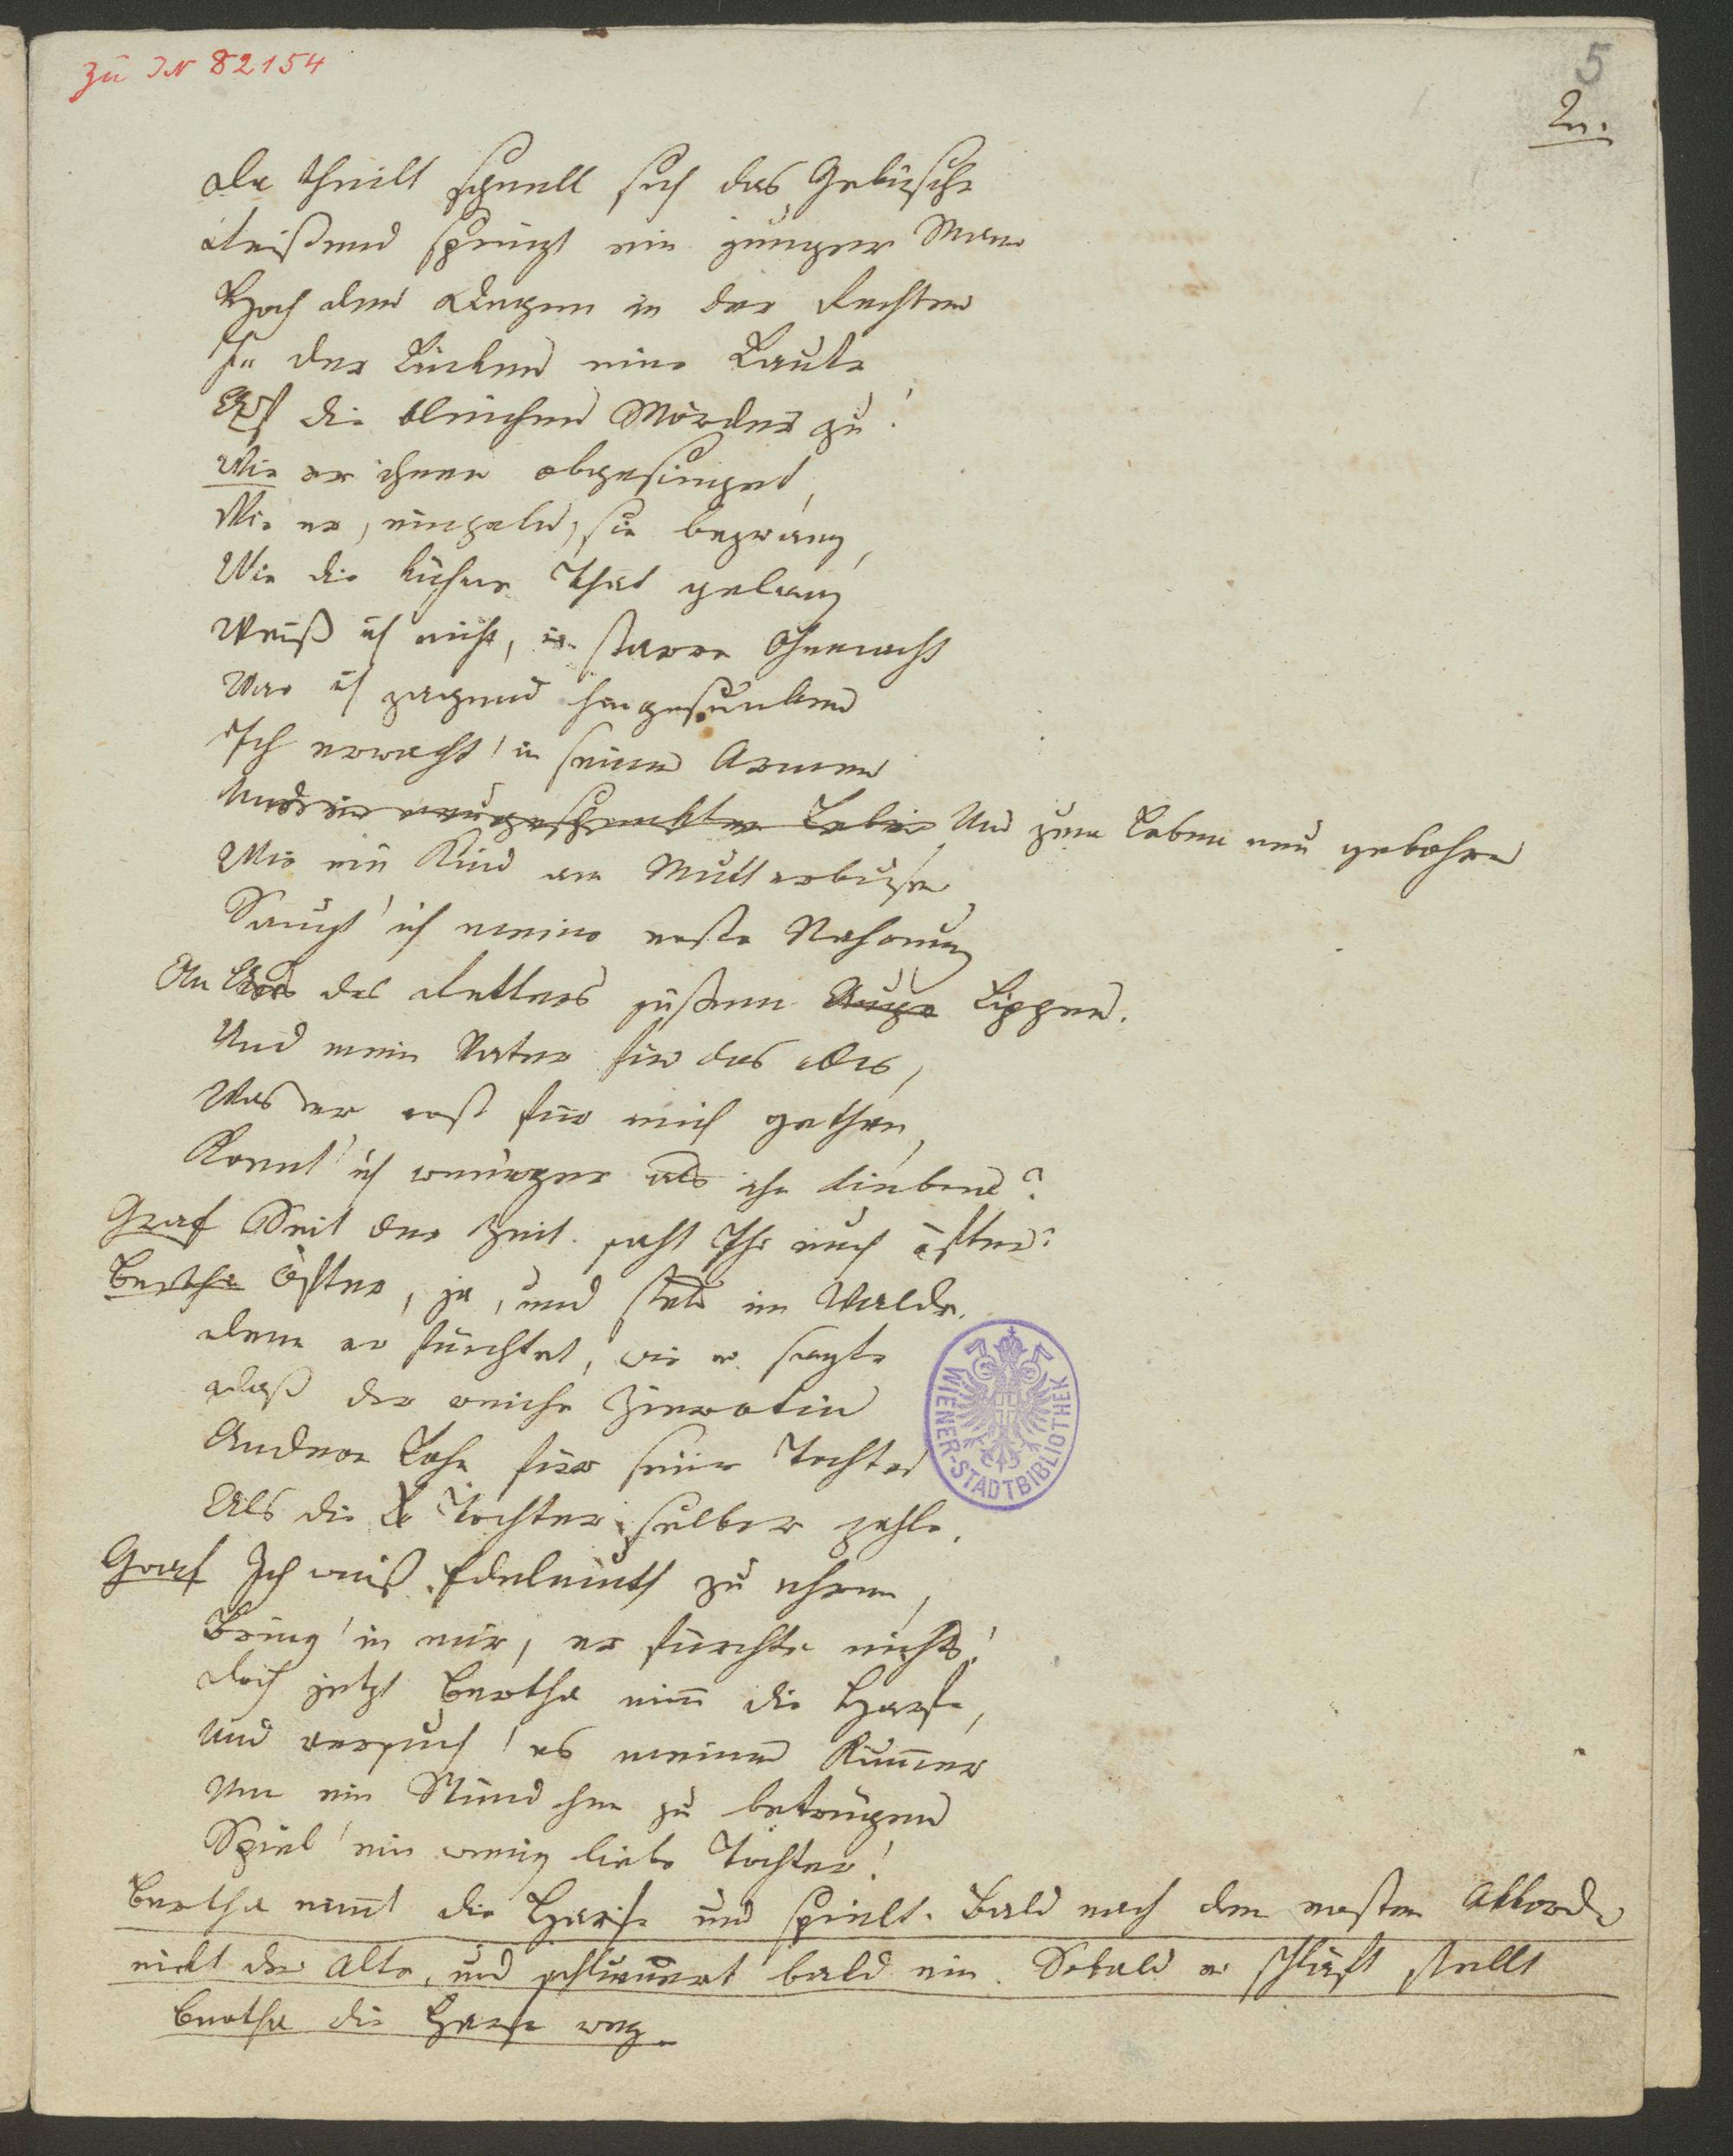 Zu IN 82154
5
2.
Da theilt schnell sich das Gebüsche
Dreißend springt ein junger Mann
Hoch den Degen in der Rechten
In der Linken eine Laute
Auf die bleichen Mörder zu!
Wie er ihnen obgesieget,
Wie er, einzeln, sie bezwang,
Wie die kühne That gelang
Weiß ich nicht, in starre Ohnmacht
War ich zagend hingesunken
Ich erwacht' in seinen Armen
Und im neugeschenkten Leben Und zum Leben neu gebohren
Wie ein Kind am Mutterbusen
Saugt' ich meine erste Nahrung
An des Retters süßem Auge Lippen.
Und mein Vater für das alles,
Was er erst für mich gethan,
Konnt' ich weniger als ihn lieben?
Graf Seit der Zeit saht Ihr euch öfter?
Bertha Öfter, ja, und stets im Walde.
Denn er fürchtet, wie er sagte
Daß der reiche Zierotin
Andern Lohn für seine Tochter
Als die Tochter selber zahle.
Graf Ich weiß Edelmuth zu ehren,
Bring' in mir, er fürchte nichts!
Doch jetzt Bertha nim̅ die Harfe,
Und versuch' es meinen Kum̅er
Um ein Stündchen zu betrügen
Spiel' ein wenig liebe Tochter!
Bertha nim̅t die Harfe und spielt. Bald nach den ersten Akkorden
nickt der Alte, und schlum̅ert bald ein. Sobald er schläft stellt
Bertha die Harfe weg.
WIENER-STADTBIBLIOTHEK